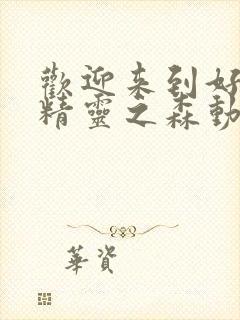 歡迎来到好
精靈之森動
華資